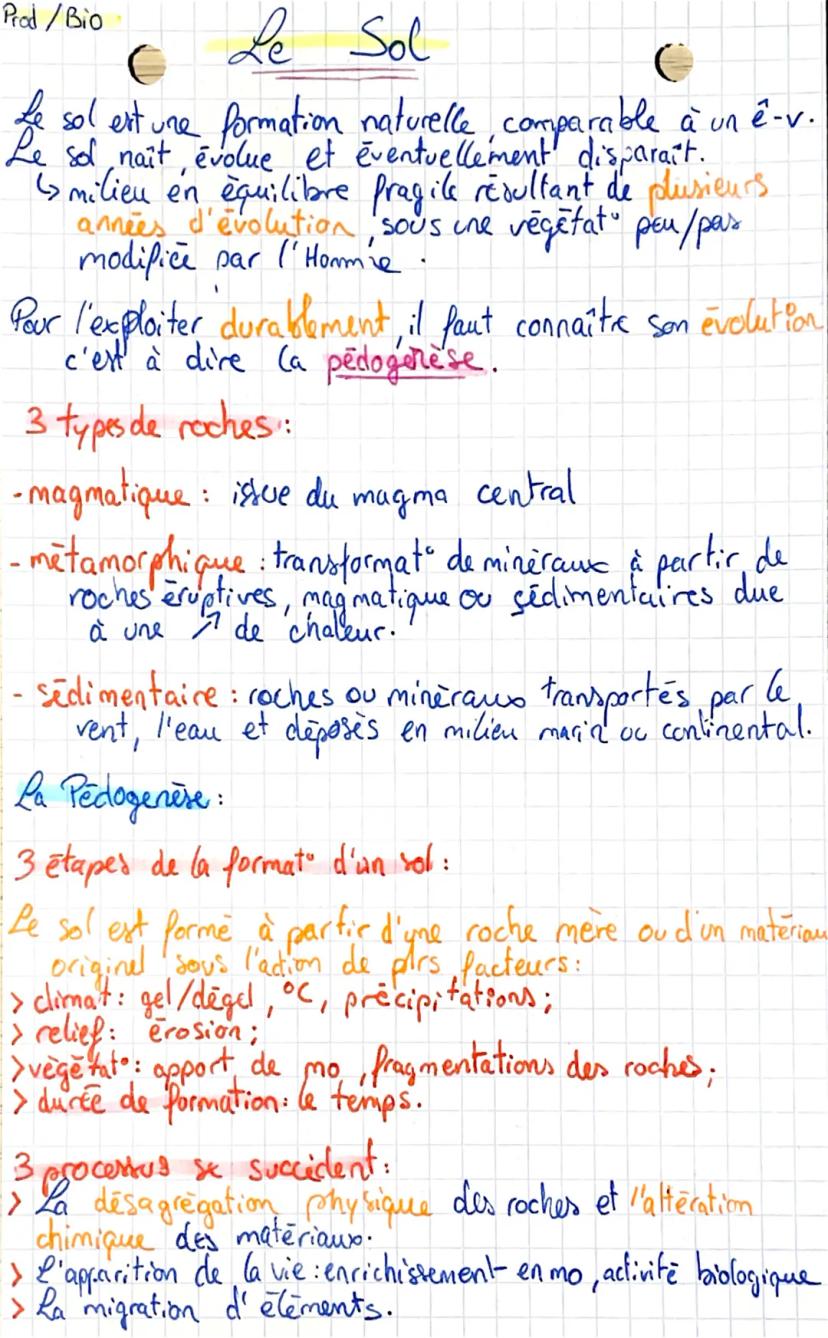 Prod / Bio
Le Sol
Le sol est une formation naturelle, comparable à un ê-v.
Le sol naît, évolue et éventuellement disparait.
↳ milieu en équilibre fragile résultant de plusieurs
années d'évolution, sous une végétat° peu/pas
modifiée par l'Homme.
Pour l'exploiter durablement, il faut connaître son évolution
c'est à dire la pédogenèse.
3 types de roches :
- magmatique : issue du magma central
- métamorphique : transformat° de minéraux à partir de
roches éruptives, magmatique ou sédimentaires due
à une ↗ de chaleur.
- sédimentaire : roches ou minéraux transportés par le
vent, l'eau et déposés en milieu marin ou continental.
La Pédogenèse :
3 étapes de la format° d'un sol :
Le sol est formé à partir d'une roche mère ou d'un matériau
originel sous l'action de plrs facteurs :
> climat : gel/dégel, °C, précipitations ;
> relief : érosion ;
> végétat° : apport de mo, fragmentations des roches ;
> durée de formation : le temps.
3 processus se succèdent :
> La désagrégation physique des roches et l'altération
chimique des matériaux.
> L'apparition de la vie : enrichissement en mo, activité biologique
> La migration d'éléments.